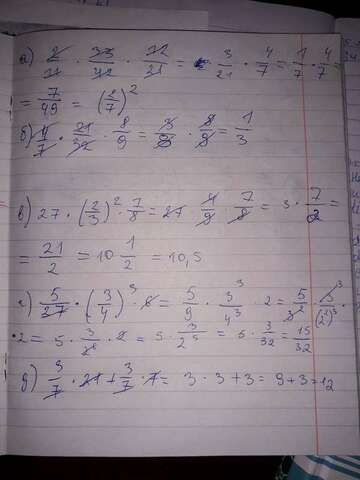 а) 2/11 · 33/42 · 12/21 = 3/21 · 4/7 = 1/7 · 4/7 =
= 7/49 = (2/7)²
б) 4/7 · 21/32 · 8/9 = 3/8 · 8/9 = 1/3
в) 27 · (2/3)² · 7/8 = 27 · 4/9 · 7/8 = 3 · 7/2 =
= 21/2 = 10 1/2 = 10,5
г) 5/27 · (3/4)³ · 6 = 5/9 · 3³/4³ · 2 = 5/3² · 3³/(2²)³ ·
· 2 = 5 · 3/2⁶ · 2 = 5 · 3/2⁵ = 5 · 3/32 = 15/32
д) 3/7 · 21 + 3/7 · 7 = 3 · 3 + 3 = 9 + 3 = 12